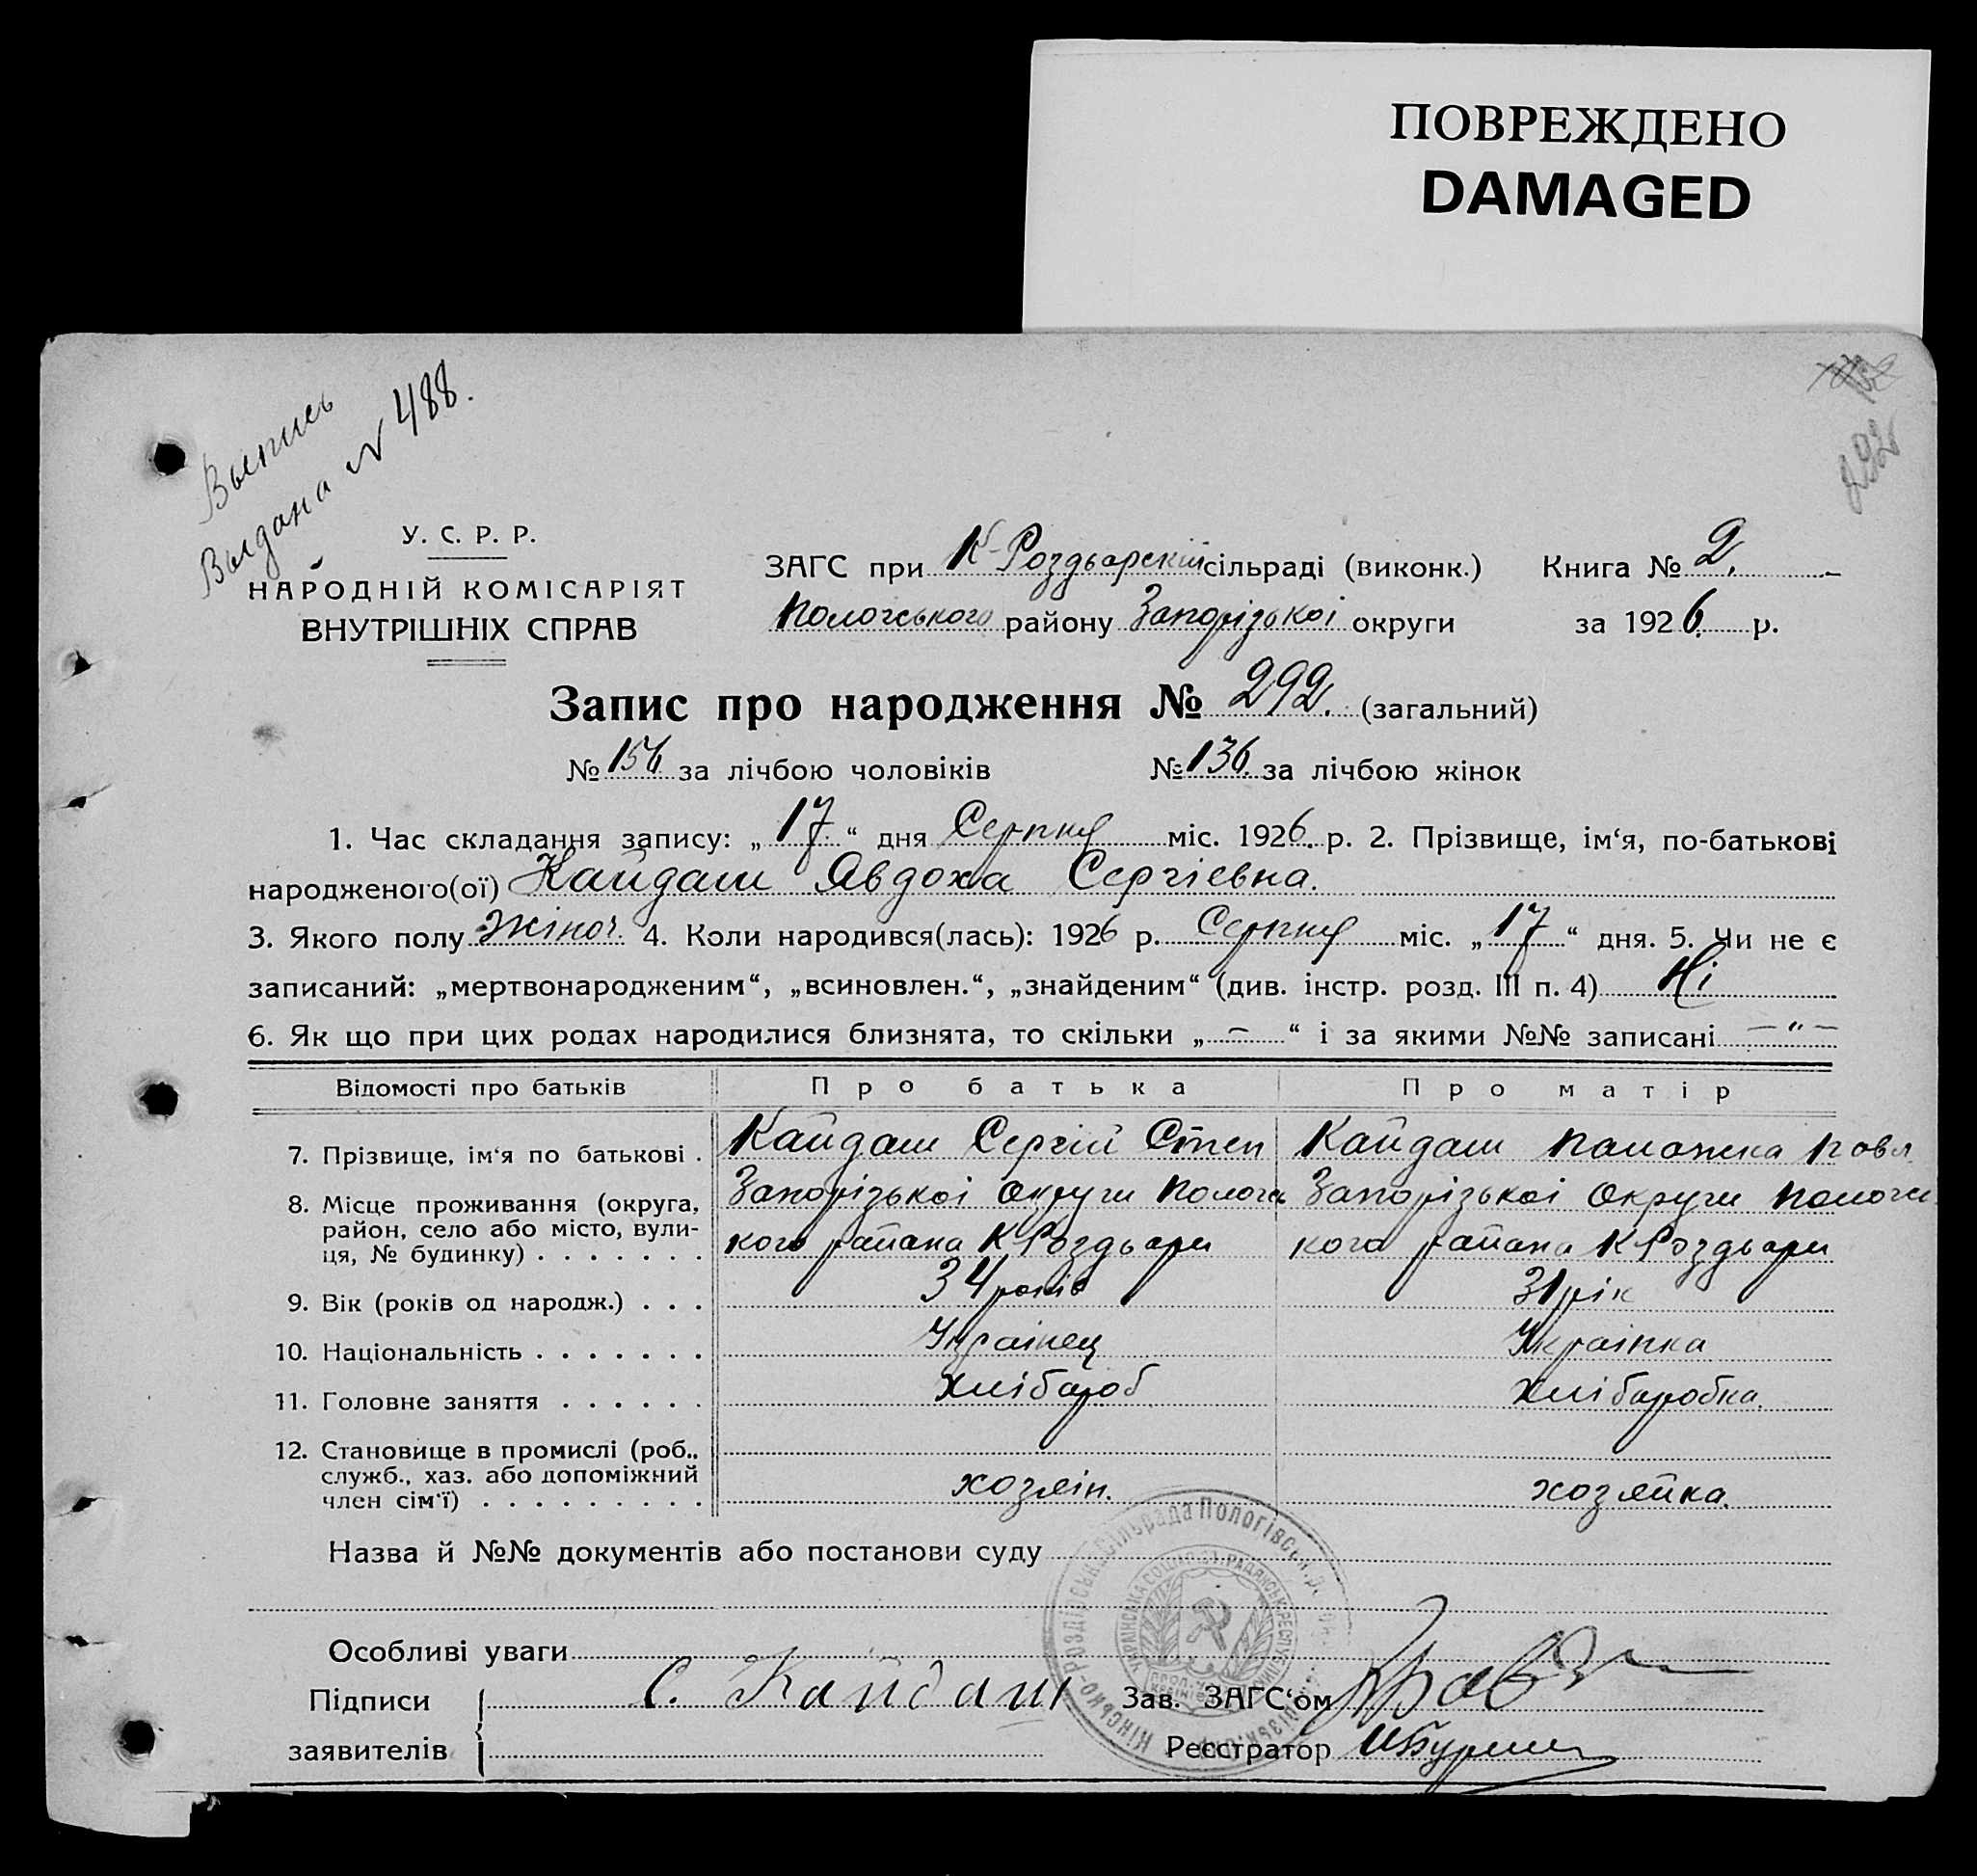 ПОВРЕЖДЕНО
DAMAGED
Выпись
Выдана № 488.
292
У. С. Р. Р.
НАРОДНІЙ КОМІСАРІЯТ
ВНУТРІШНІХ СПРАВ
ЗАГС при К-Роздьарскій сільраді (виконк.) Книга № 2.
Пологського району Запорізькоі округи за 1926. р.
Запис про народження № 292. (загальний)
№ 156 за лічбою чоловіків № 136. за лічбою жінок
1. Час складання запису: „17“ дня Серпня міс. 1926. р. 2. Прізвище, ім‘я, по-батькові
народженого(ої) Кайдаш Явдоха Сергієвна.
3. Якого полу жіноч. 4. Коли народився(лась): 1926 р. Серпня міс. „17“ дня. 5. Чи не є
записаний: „мертвонародженим“, „всиновлен.“, „знайденим“ (див. інстр. розд. III п. 4) Ні
6. Як що при цих родах народилися близнята, то скільки „—“ і за якими №№ записані —"—
Відомості про батьків Про батька Про матір
7. Прізвище, ім‘я по батькові . Кайдаш Сергій Степ Кайдаш Павл
8. Місце проживання (округа, Запорізькоі Округи Пологс Запорізькоі Округи Пологс
район, село або місто, вули-
ця, № будинку) . . . . . . . кого района К Роздьари кого района К Роздьари
9. Вік (років од народж.) . . . 34 років 31 рік
10. Національність . . . . . . . Украінец Украінка
11. Головне заняття . . . . . . хлібароб хлібаробка.
12. Становище в промислі (роб.,
служб., хаз. або допоміжний
член сім‘ї) . . . . . . . . . хозяін. хозяйка.
Назва й №№ документів або постанови суду
Особливі уваги
Підписи С. Кайдаш Зав. ЗАГС‘ом
заявителів Реєстратор
Кінсько-Роздірська сільрада Пологівськ. р.
УКРАЇНСЬКА СОЦІЯЛ. РАДЯНСЬК РЕСПУБЛІКА